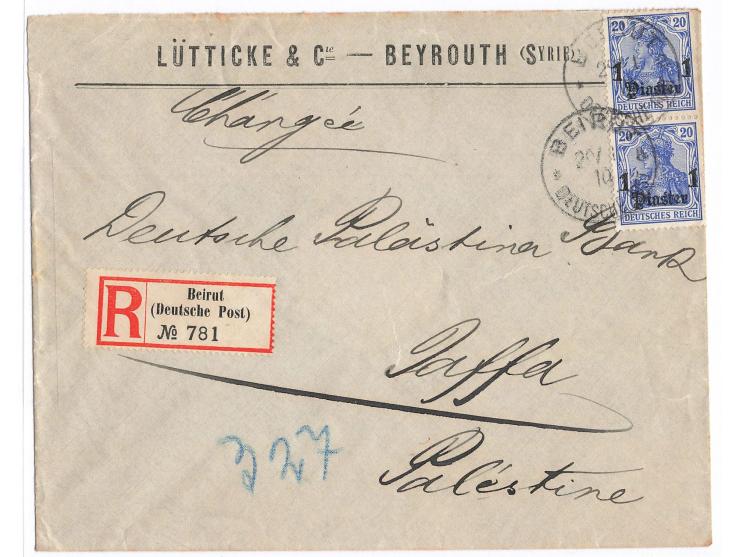 LÜTTICKE & Cie — BEYROUTH (SYRIE)
20 20
1 1
Piaster
DEUTSCHES REICH
20 20
1 1
Piaster
DEUTSCHES REICH
BEIRUT
DEUTSCHE
Chargée
Deutsche Palästina Bank
R
Beirut
(Deutsche Post)
№ 781
Jaffa
327
Palestine